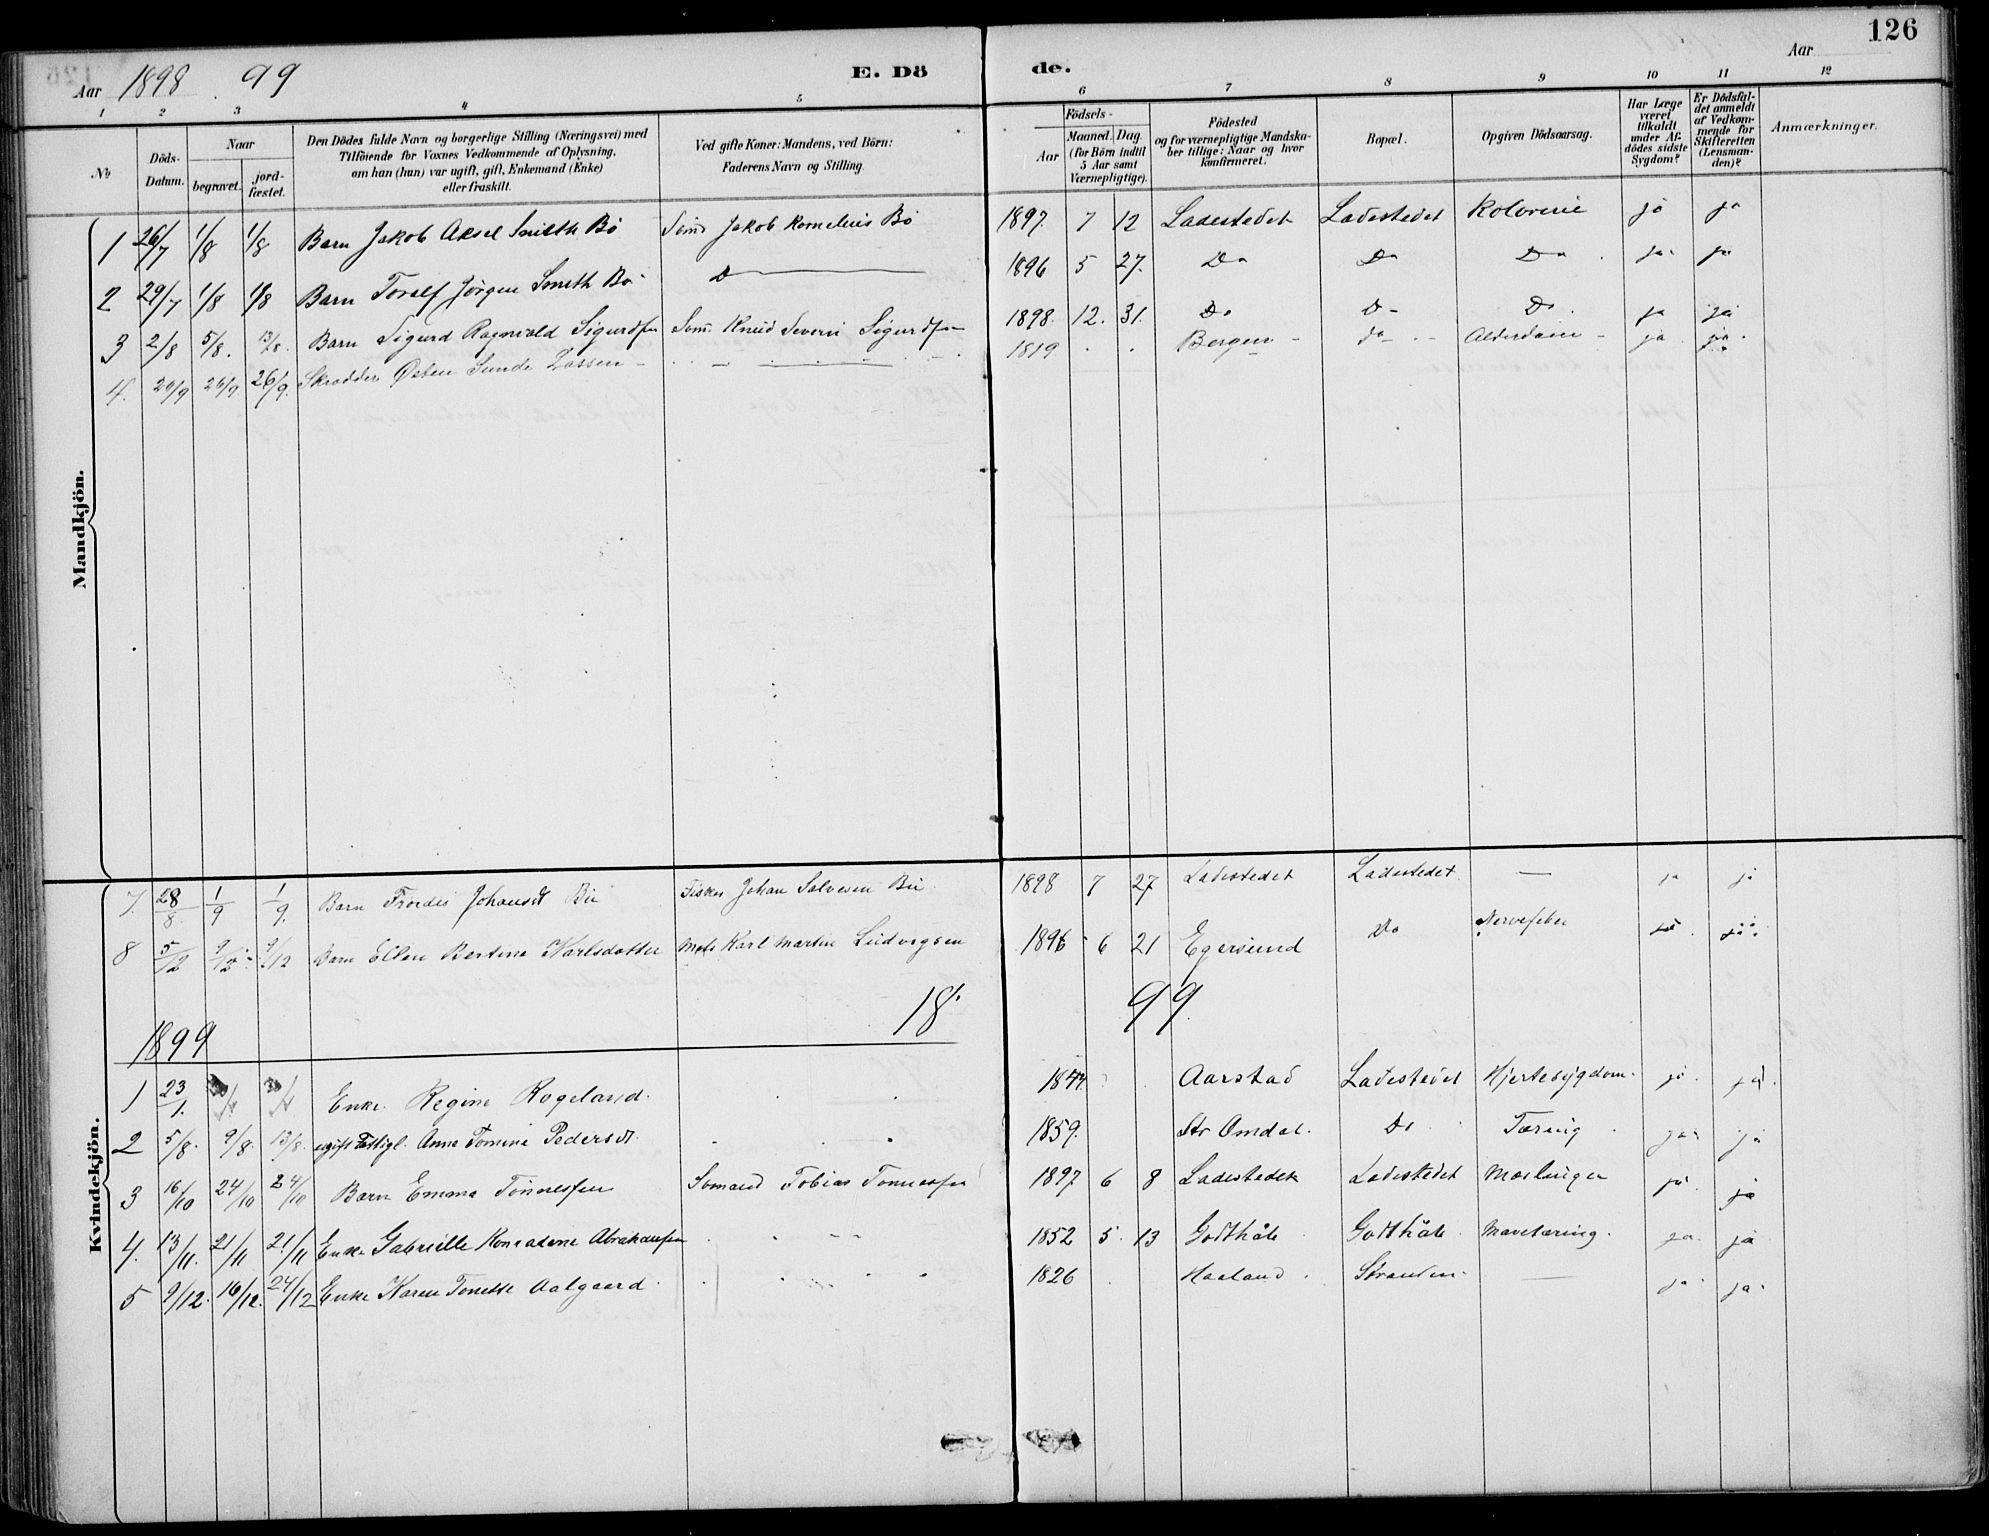 126
Aar 1898 99 E. Dö de. Aar
1 2 3 4 5 6 7 8 9 10 11 12
No
Döds-Datum.
Naar
begravet.
jordfæstet.
Den Dödes fulde Navn og borgerlige Stilling (Næringsvei) med
Tilföiende for Voxnes Vedkommende af Oplysning,
om han (hun) var ugift, gift, Enkemand (Enke)
eller fraskilt.
Ved gifte Koner: Mandens, ved Börn:
Faderens Navn og Stilling.
Födsels-
Aar
Maaned. Dag.
(for Börn indtil
5 Aar samt
Værnepligtige).
Födested
og for værnepligtige Mandska-
ber tillige: Naar og hvor
konfirmeret.
Bopæl.
Opgiven Dödsaarsag.
Har Læge
været
tilkaldt
under Af-
dödes sidste
Sygdom?
Er Dödsfal-
det anmeldt
af Vedkom-
mende for
Skifteretten
(Lensman-
den)?
Anmærkninger.
Mandkjön.
1 26/7 1/8 1/8 Barn Jakob Aksel Smith Bö Söm. Jakob Kornelius Bö 1897. 7 12 Ladestedet Ladestedet Kolorine ja ja
2 29/7 1/8 1/8 Barn Toralf Jörgen Smith Bö D 1896 5 27. Do Do Do ja ja
3 2/8 5/8. 13/8. Barn Sigurd Ragnvald Sigurdsen Söm. Knud Severin Sigurdsen 1898. 12. 31. Do Do Do. ja ja
4. 20/9 26/9 26/9. Skrædder Östen Sunde Lassen 1819 Bergen do Alderdom ja ja.
Kvindekjön.
7. 28/8 1/9 1/9. Barn Frordis Johansdt Bie Fisker Johan Salvesen Bie 1898 7 27 Ladestedet Ladestedet. — ja ja
8 5/12 9/12 9/12 Barn Ellen Bertine Karlsdatter Karl Martin Ludvigsen 1896 6 21 Egersund Do Nervefeber ja. ja
1899 18. 99.
1 23/1. Enke. Regine Rogeland. 1844 Aarstad Ladestedet Hjertesygdom. ja. ja.
2 5/8. 9/8. 13/8. ugift Fattigl. Anne Tomine Pedersdt. 1859. Str Omdal. Do Tæring ja. ja
3 16/10 24/10 24/10 Barn Emma Tönnesen Sömand Tobias Tönnesen 1897 6 8 Ladestedet Ladestedet Mæslinger ja. ja
4. 13/11. 21/11 21/11 Enke Gabrielle Konradine Abrahamsen 1852 5 13 Godthåb Godthåb. Mavetæring. ja. ja
5 9/12. 16/12. 24/12 Enke Karen Tonette Aalgaard. 1826 Haaland. Stranden. — ja. ja.